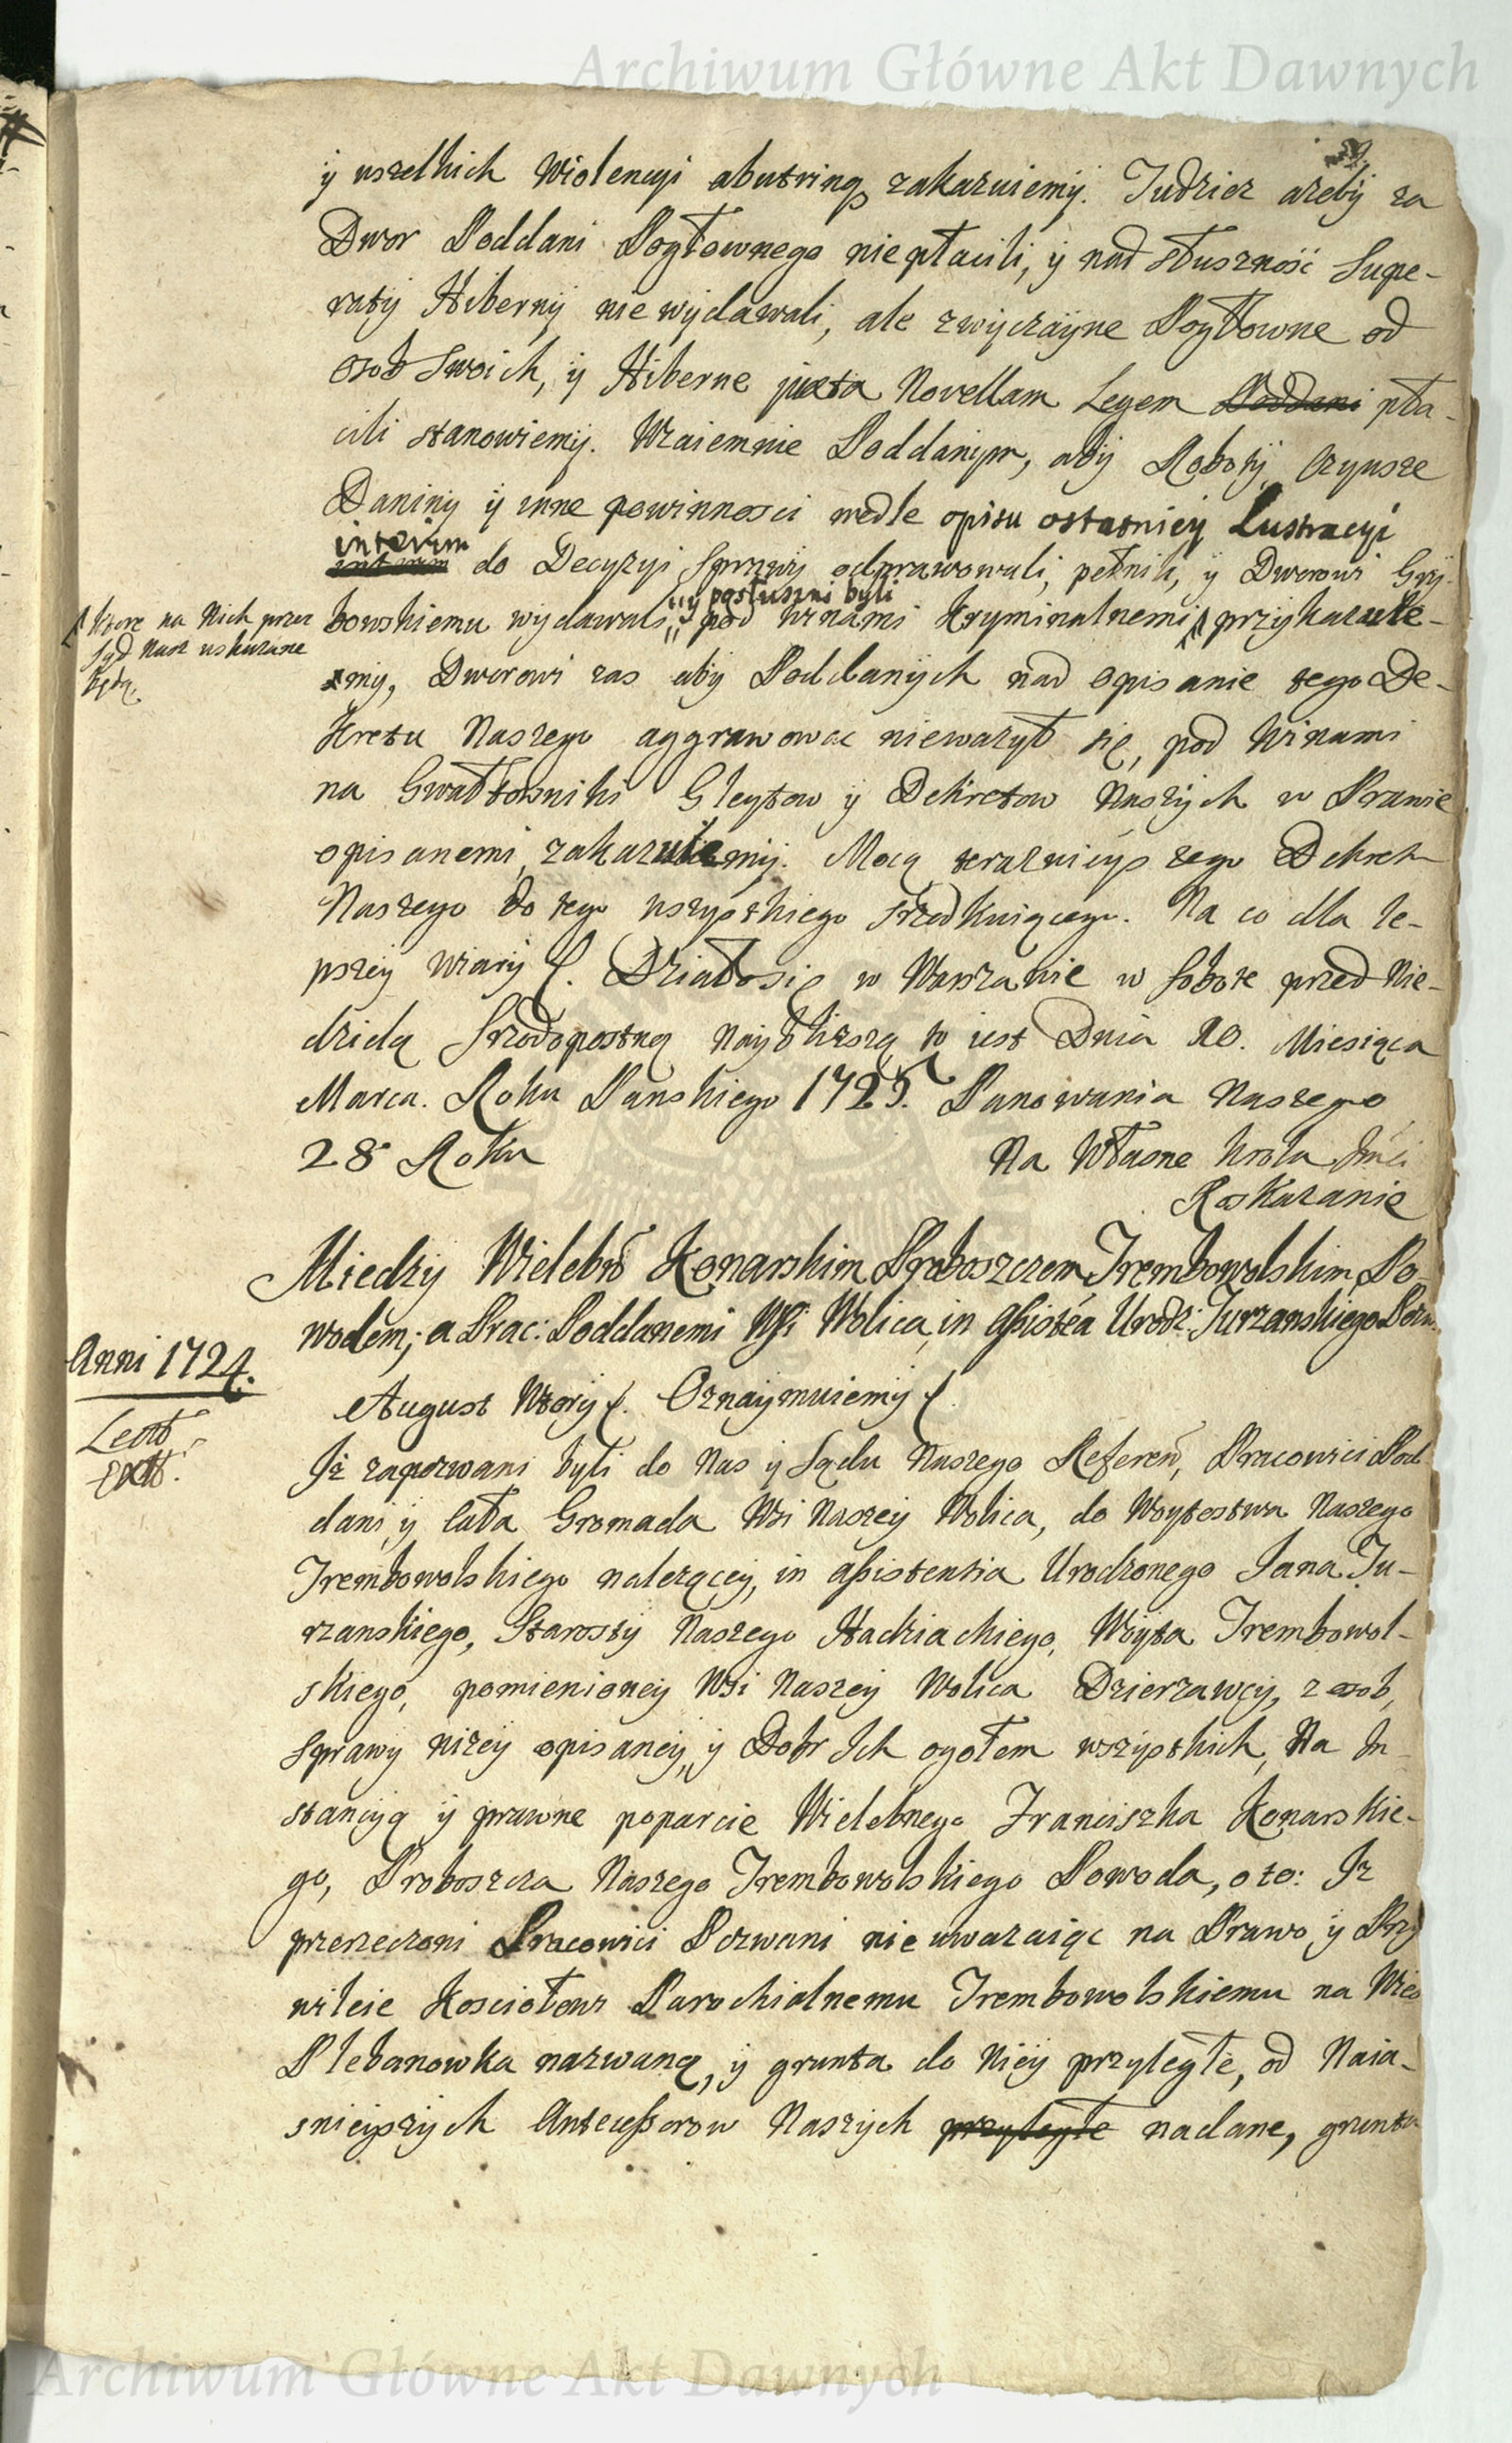 Archiwum Główne Akt Dawnych
ÿ wszelkich Wiolencyi abutring zakazuiemÿ. Tudziez azebÿ za
Dwor Poddani Pogłownego niepłacili, ÿ nad słusznosć Supe-
ratÿ Hibernÿ nie wÿdawali, ale zwÿczaÿne Pogłowne od
osob Swoich, ÿ Hiberne juxta Novellam Legem Poddani pła-
cili stanowiemÿ. Wzaiemnie Poddanÿm, abÿ Robotÿ, Czynsze
Daninÿ ÿ inne powinnosci wedle opisu ostatniey Lustracyi
interim
interim do Decyzyi Sprawÿ odprawowali, pełnili, ÿ Dworowi Grzÿ-
ÿ posłuszni byli
bowskiemu wÿdawali, pod winami Krÿminalnemi, przÿkazuie-
ktore na Nich przez
Sąd Nasz wskazane
będą.
mÿ, Dworowi zas abÿ Poddanÿch nad opisanie tego De-
kretu Naszego aggrawowac niewazył się, pod Winami
na Gwałtowniki Gleytow ÿ Dekretow Naszÿch w Prawie
opisanemi, zakazuiemÿ. Mocą teraznieÿszego Dekretu
Naszego do tego wszÿstkiego srzodkuiącego. Na co dla le-
pszeÿ wiarÿ &. Działosię w Warszawie w Sobotę przed Nie-
dzielą Srzodopostną Naÿblizszą to iest Dnia 10. Miesiąca
Marca. Roku Panskiego 1725. Panowania Naszego
28 Roku
Na Własne Krola Jmci
Roskazanie
Miedzÿ Wielebn Konarskim Proboszczem Trembowolskim Po-
wodem; a Prac: Poddanemi Wsi Wolica, in assistea Urodz: Turzanskiego Pozw.
Anni 1724.
Lectt
extt.
August Wtorÿ &. Oznaÿmuiemÿ &.
Iż zapozwani bÿli do Nas ÿ Sądu Naszego Referen, Pracowici Pod-
dani ÿ cała Gromada Wsi Naszeÿ Wolica, do Woytostwa Naszego
Trembowolskiego nalezącey, in assistentia Urodzonego Jana Tu-
rzanskiego, Starostÿ Naszego Hadziackiego, Woÿta Trembowol-
skiego, pomienioneÿ Wsi Naszeÿ Wolica Dzierzawcÿ, z osob,
Sprawÿ nizeÿ opisaneÿ, ÿ Dobr Ich ogołem wszÿstkich, Na In-
stancÿą ÿ prawne poparcie Wielebnego Franciszka Konarskie-
go, Proboszcza Naszego Trembowolskiego Powoda, o to: Iz
przerzeczoni Pracowici Pozwani nie uwazaiąc na Prawo, ÿ Przÿ
wileie Kosciołowi Parochialnemu Trembowolskiemu na Wies
Plebanowka nazwaną, ÿ grunta do Nieÿ przÿległe, od Naia-
snieÿszÿch Antecessorow Naszÿch przyległe nadane, grunta
Archiwum Główne Akt Dawnych